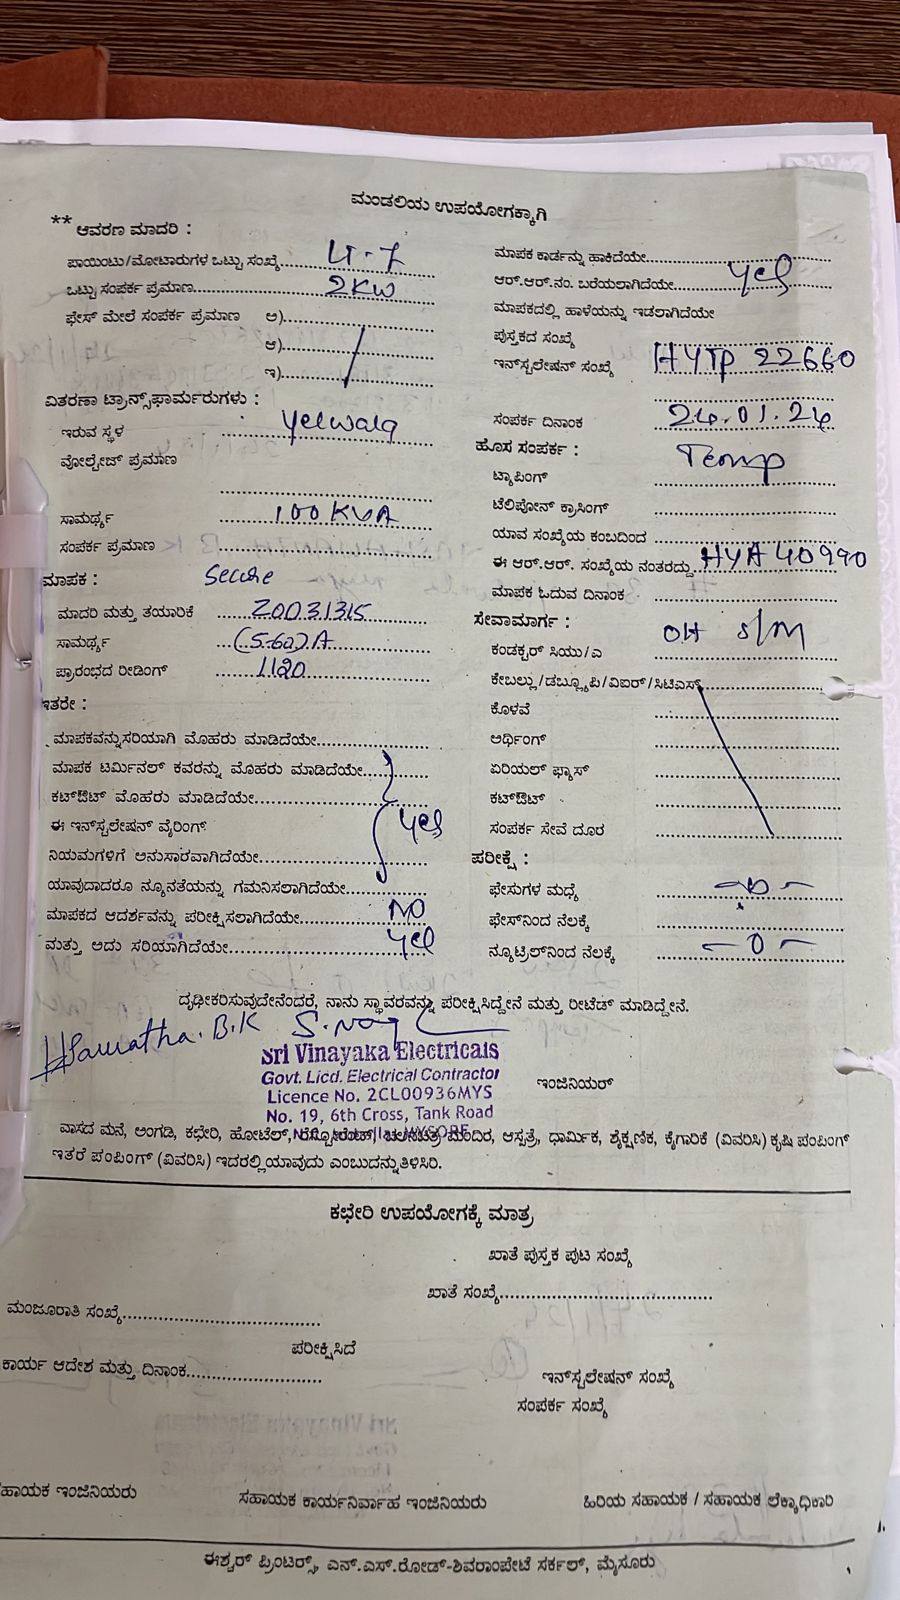 ಮಂಡಲಿಯ ಉಪಯೋಗಕ್ಕಾಗಿ
** ಆವರಣ ಮಾದರಿ :
ಪಾಯಿಂಟು/ಮೋಟಾರುಗಳ ಒಟ್ಟು ಸಂಖ್ಯೆ.......... LT-7
ಒಟ್ಟು ಸಂಪರ್ಕ ಪ್ರಮಾಣ.......... 2KW
ಫೇಸ್ ಮೇಲೆ ಸಂಪರ್ಕ ಪ್ರಮಾಣ ಅ)..........
ಆ)..........
ಇ)..........
ವಿತರಣಾ ಟ್ರಾನ್ಸ್‌ಫಾರ್ಮರುಗಳು :
ಇರುವ ಸ್ಥಳ .......... Yelwala
ವೋಲ್ಟೇಜ್ ಪ್ರಮಾಣ
ಸಾಮರ್ಥ್ಯ .......... 100 KVA
ಸಂಪರ್ಕ ಪ್ರಮಾಣ ..........
ಮಾಪಕ : Secure
ಮಾದರಿ ಮತ್ತು ತಯಾರಿಕೆ .......... 20031315
ಸಾಮರ್ಥ್ಯ .......... (5-60)A
ಪ್ರಾರಂಭದ ರೀಡಿಂಗ್ .......... 1120
ಇತರೇ :
ಮಾಪಕವನ್ನು ಸರಿಯಾಗಿ ಮೊಹರು ಮಾಡಿದೆಯೇ..........
ಮಾಪಕ ಟರ್ಮಿನಲ್ ಕವರನ್ನು ಮೊಹರು ಮಾಡಿದೆಯೇ..........
ಕಟ್‌ಔಟ್ ಮೊಹರು ಮಾಡಿದೆಯೇ..........
ಈ ಇನ್‌ಸ್ಟಲೇಷನ್ ವೈರಿಂಗ್ Yes
ನಿಯಮಗಳಿಗೆ ಅನುಸಾರವಾಗಿದೆಯೇ..........
ಯಾವುದಾದರೂ ನ್ಯೂನತೆಯನ್ನು ಗಮನಿಸಲಾಗಿದೆಯೇ..........
ಮಾಪಕದ ಆದರ್ಶವನ್ನು ಪರೀಕ್ಷಿಸಲಾಗಿದೆಯೇ.......... NO
ಮತ್ತು ಅದು ಸರಿಯಾಗಿದೆಯೇ.......... Yes
ಮಾಪಕ ಕಾರ್ಡನ್ನು ಹಾಕಿದೆಯೇ..........
ಆರ್.ಆರ್.ನಂ. ಬರೆಯಲಾಗಿದೆಯೇ.......... Yes
ಮಾಪಕದಲ್ಲಿ ಹಾಳೆಯನ್ನು ಇಡಲಾಗಿದೆಯೇ
ಪುಸ್ತಕದ ಸಂಖ್ಯೆ
ಇನ್‌ಸ್ಟಲೇಷನ್ ಸಂಖ್ಯೆ HYTP 22660
ಸಂಪರ್ಕ ದಿನಾಂಕ 24.01.24
ಹೊಸ ಸಂಪರ್ಕ : Temp
ಟ್ಯಾಪಿಂಗ್ ..........
ಟೆಲಿಫೋನ್ ಕ್ರಾಸಿಂಗ್ ..........
ಯಾವ ಸಂಖ್ಯೆಯ ಕಂಬದಿಂದ ..........
ಈ ಆರ್.ಆರ್. ಸಂಖ್ಯೆಯ ನಂತರದ್ದು.. HYA 40990
ಮಾಪಕ ಓದುವ ದಿನಾಂಕ ..........
ಸೇವಾಮಾರ್ಗ : OH S/M
ಕಂಡಕ್ಟರ್ ಸಿಯು/ಎ ..........
ಕೇಬಲ್ಲು/ಡಬ್ಲ್ಯೂಪಿ/ವಿಐರ್/ಸಿಟಿಎಸ್..........
ಕೊಳವೆ ..........
ಅರ್ಥಿಂಗ್ ..........
ಏರಿಯಲ್ ಫ್ಯೂಸ್ ..........
ಕಟ್‌ಔಟ್ ..........
ಸಂಪರ್ಕ ಸೇವೆ ದೂರ ..........
ಪರೀಕ್ಷೆ :
ಫೇಸುಗಳ ಮಧ್ಯೆ — 0 —
ಫೇಸ್‌ನಿಂದ ನೆಲಕ್ಕೆ ..........
ನ್ಯೂಟ್ರಿಲ್‌ನಿಂದ ನೆಲಕ್ಕೆ — 0 —
ದೃಢೀಕರಿಸುವುದೇನೆಂದರೆ, ನಾನು ಸ್ಥಾವರವನ್ನು ಪರೀಕ್ಷಿಸಿದ್ದೇನೆ ಮತ್ತು ರೀಟೆಡ್ ಮಾಡಿದ್ದೇನೆ.
B.K
Sri Vinayaka Electricals
Govt. Licd. Electrical Contractor
Licence No. 2CL00936MYS
No. 19, 6th Cross, Tank Road
MYSORE
ಇಂಜಿನಿಯರ್
ವಾಸದ ಮನೆ, ಅಂಗಡಿ, ಕಛೇರಿ, ಹೋಟೆಲ್, ರೆಸ್ಟೋರೆಂಟ್, ಚಲನಚಿತ್ರ ಮಂದಿರ, ಆಸ್ಪತ್ರೆ, ಧಾರ್ಮಿಕ, ಶೈಕ್ಷಣಿಕ, ಕೈಗಾರಿಕೆ (ವಿವರಿಸಿ) ಕೃಷಿ ಪಂಪಿಂಗ್
ಇತರೆ ಪಂಪಿಂಗ್ (ವಿವರಿಸಿ) ಇದರಲ್ಲಿ ಯಾವುದು ಎಂಬುದನ್ನು ತಿಳಿಸಿರಿ.
ಕಛೇರಿ ಉಪಯೋಗಕ್ಕೆ ಮಾತ್ರ
ಖಾತೆ ಪುಸ್ತಕ ಪುಟ ಸಂಖ್ಯೆ
ಖಾತೆ ಸಂಖ್ಯೆ..........
ಮಂಜೂರಾತಿ ಸಂಖ್ಯೆ..........
ಪರೀಕ್ಷಿಸಿದೆ
ಕಾರ್ಯ ಆದೇಶ ಮತ್ತು ದಿನಾಂಕ..........
ಇನ್‌ಸ್ಟಲೇಷನ್ ಸಂಖ್ಯೆ
ಸಂಪರ್ಕ ಸಂಖ್ಯೆ
ಸಹಾಯಕ ಇಂಜಿನಿಯರು
ಸಹಾಯಕ ಕಾರ್ಯನಿರ್ವಾಹ ಇಂಜಿನಿಯರು
ಹಿರಿಯ ಸಹಾಯಕ / ಸಹಾಯಕ ಲೆಕ್ಕಾಧಿಕಾರಿ
ಈಶ್ವರ್ ಪ್ರಿಂಟರ್ಸ್, ಎನ್.ಎಸ್.ರೋಡ್-ಶಿವರಾಂಪೇಟೆ ಸರ್ಕಲ್, ಮೈಸೂರು